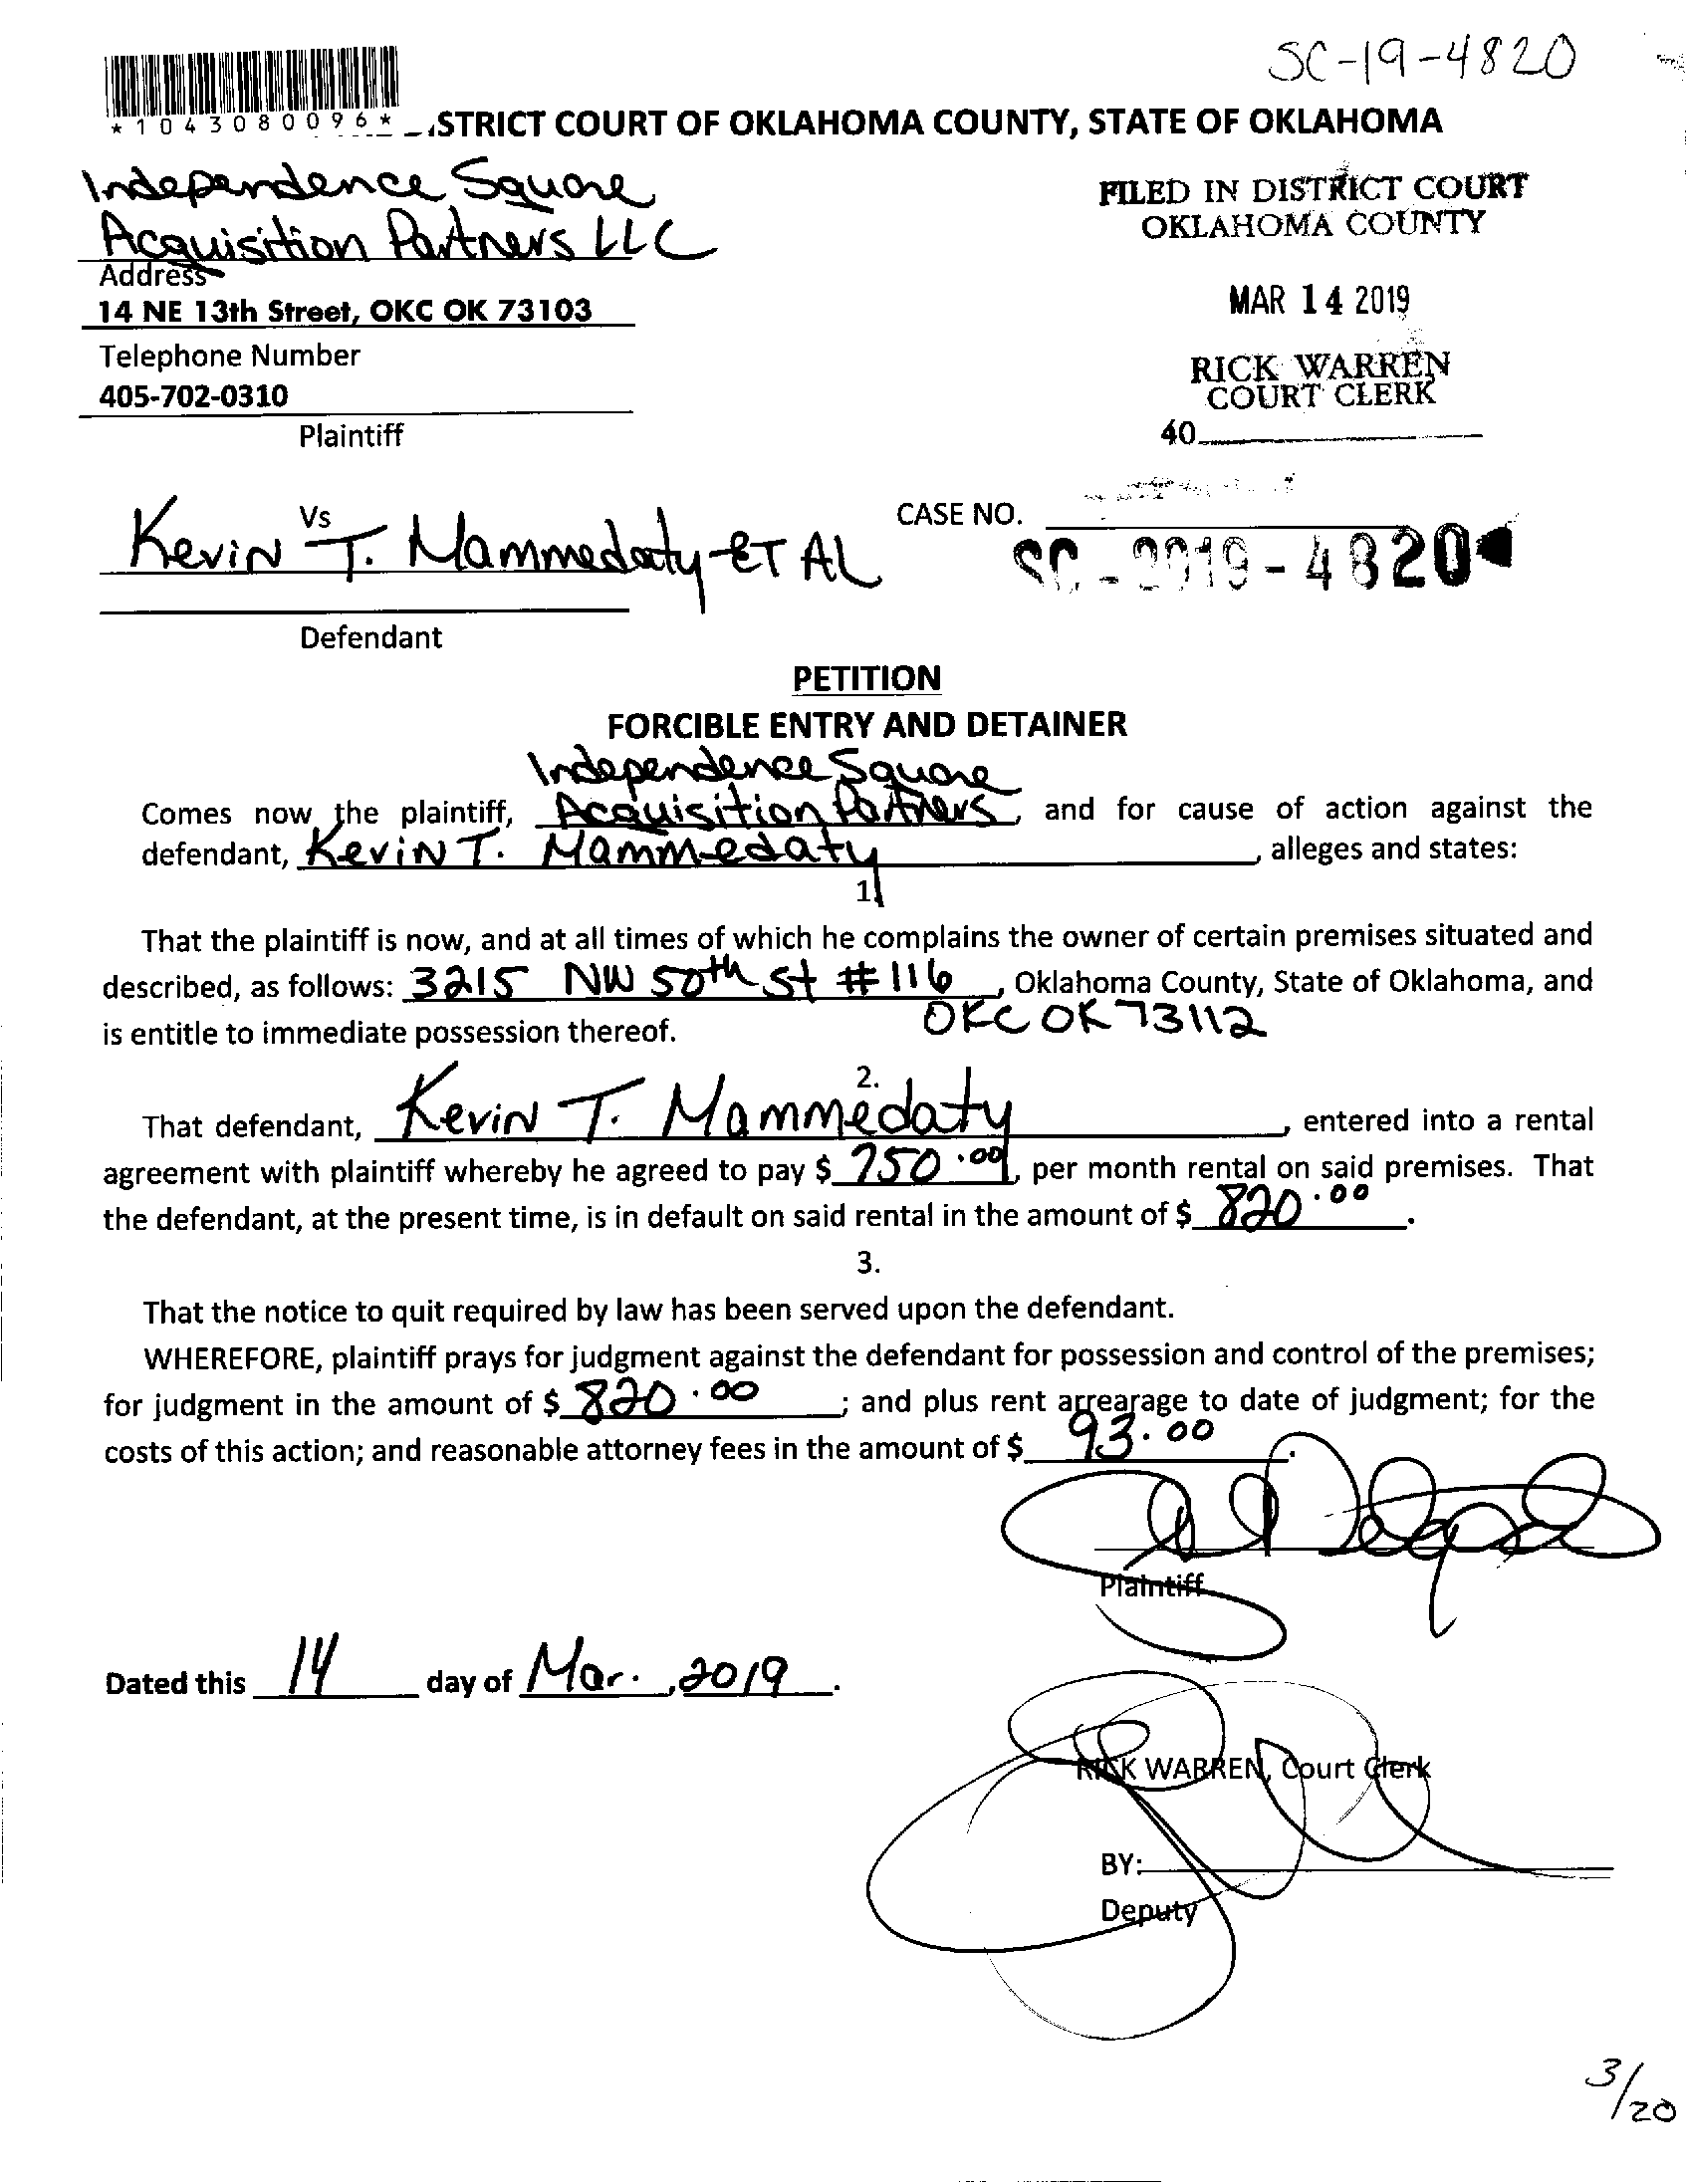 SC-19-4820
*1043080096* STRICT COURT OF OKLAHOMA COUNTY, STATE OF OKLAHOMA
Independence Square
Acquisition Partners LLC
Address
14 NE 13th Street, OKC OK 73103
Telephone Number
405-702-0310
Plaintiff
FILED IN DISTRICT COURT
OKLAHOMA COUNTY
MAR 14 2019
RICK WARREN
COURT CLERK
40
Vs
Kevin T. Mammedaty ET AL
Defendant
CASE NO.
SC-2019-4820
PETITION
FORCIBLE ENTRY AND DETAINER
Independence Square
Comes now the plaintiff, Acquisition Partners, and for cause of action against the
defendant, Kevin T. Mammedaty, alleges and states:
1.
That the plaintiff is now, and at all times of which he complains the owner of certain premises situated and
described, as follows: 3215 NW 50th St #116, Oklahoma County, State of Oklahoma, and
OKC OK 73112
is entitle to immediate possession thereof.
2.
That defendant, Kevin T. Mammedaty, entered into a rental
agreement with plaintiff whereby he agreed to pay $ 750.00, per month rental on said premises. That
the defendant, at the present time, is in default on said rental in the amount of $ 820.00.
3.
That the notice to quit required by law has been served upon the defendant.
WHEREFORE, plaintiff prays for judgment against the defendant for possession and control of the premises;
for judgment in the amount of $ 820.00; and plus rent arrearage to date of judgment; for the
costs of this action; and reasonable attorney fees in the amount of $ 93.00.
Plaintiff
Dated this 14 day of Mar., 2019.
RICK WARREN, Court Clerk
BY:
Deputy
3/20